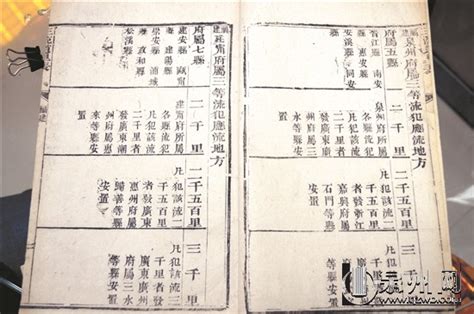 泉州府屬三等流犯應流地方
府屬五縣
晉江縣
南安
惠安縣
安溪縣
二千里
泉州府所屬
各縣流犯
凡犯該流
二千里者
發廣東廣
州府屬三
水等縣安
置
二千五百里
凡犯該流二
千五百里
者發浙江
嘉興府屬
石門等縣
安置
三千里
凡犯該流
建甯府屬三等流犯應流地方
府屬七縣
建安縣
甌甯
建陽縣
崇安縣
浦城
政和縣
松溪縣
二千里
建甯府所屬
各縣流犯
凡犯該流
二千里者
發廣東潮
州府屬
來等縣安
置
二千五百里
凡犯該流二
千五百里
者發廣東
惠州府屬
歸善等縣
安置
三千里
凡犯該流三
千里者發
廣東廣州
府屬
等縣安置
泉州网
www.qzwb.com